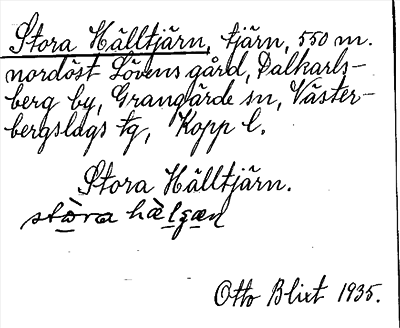 Stora Hälltjärn, tjärn, 550 m.
nordöst Lövens gård, Dalkarls-
berg by, Grangärde sn, Väster-
bergslags tg, Kopp l.
Stora Hälltjärn.
stòra hæ̀lgæn
Otto Blixt 1935.